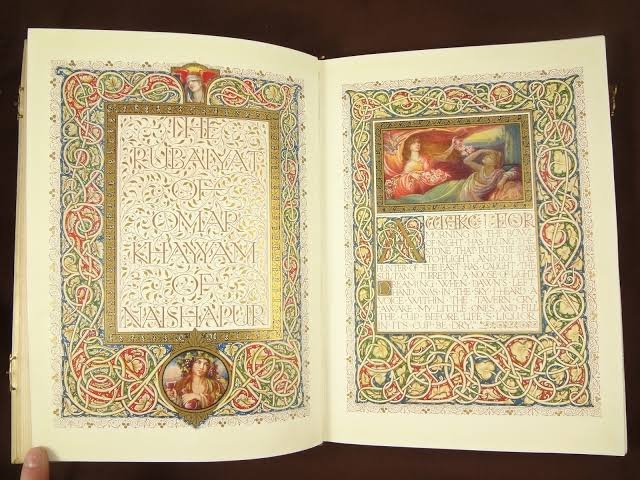 THE
RUBAIYAT
OF
OMAR
KHAYYAM
OF
NAISHAPUR
AWAKE! FOR
MORNING IN THE BOWL
OF NIGHT HAS FLUNG THE
STONE THAT PUTS THE STARS
TO FLIGHT: AND LO! THE
HUNTER OF THE EAST HAS CAUGHT THE
SULTAN'S TURRET IN A NOOSE OF LIGHT.
DREAMING WHEN DAWN'S LEFT
HAND WAS IN THE SKY I HEARD A
VOICE WITHIN THE TAVERN CRY,
AWAKE MY LITTLE ONES AND FILL
THE CUP BEFORE LIFE'S LIQUOR
IN ITS CUP BE DRY.